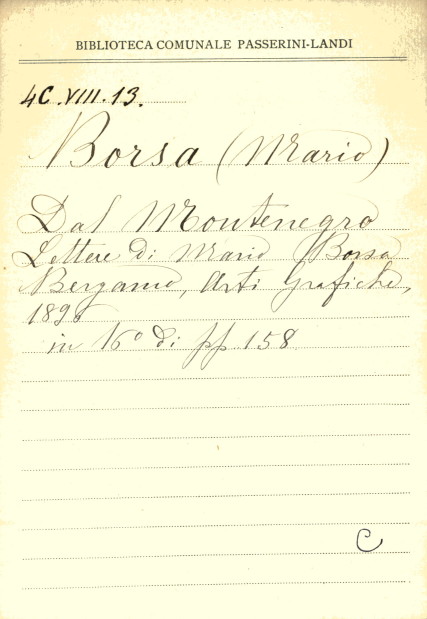 BIBLIOTECA COMUNALE PASSERINI-LANDI
4C.VIII.13.
Borsa (Mario)
Dal Montenegro
Lettere di Mario Borsa
Bergamo, Arti Grafiche,
1896
in 16° di pp 158
C